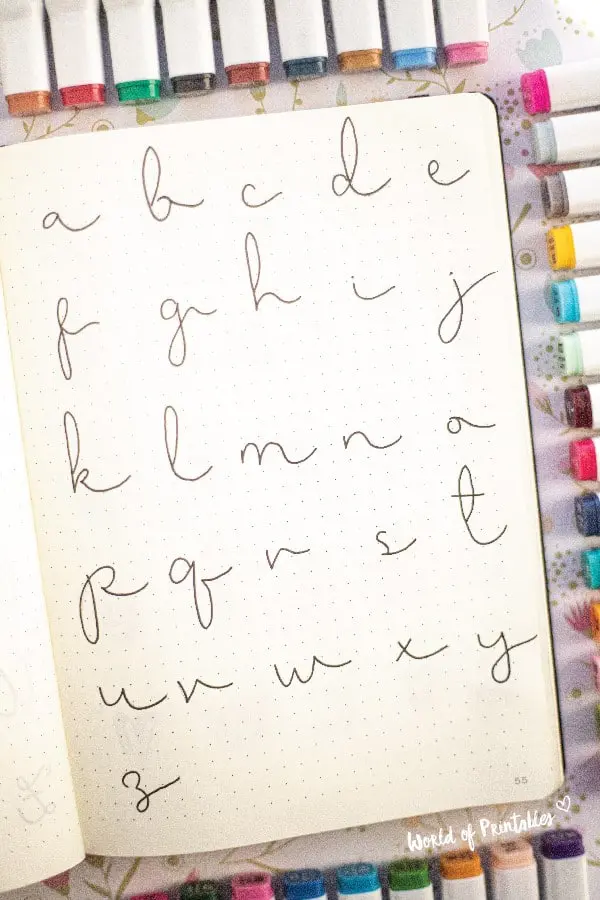 a b c d e
f g h i j
k l m n o
p q r s t
u v w x y
z
55
World of Printables